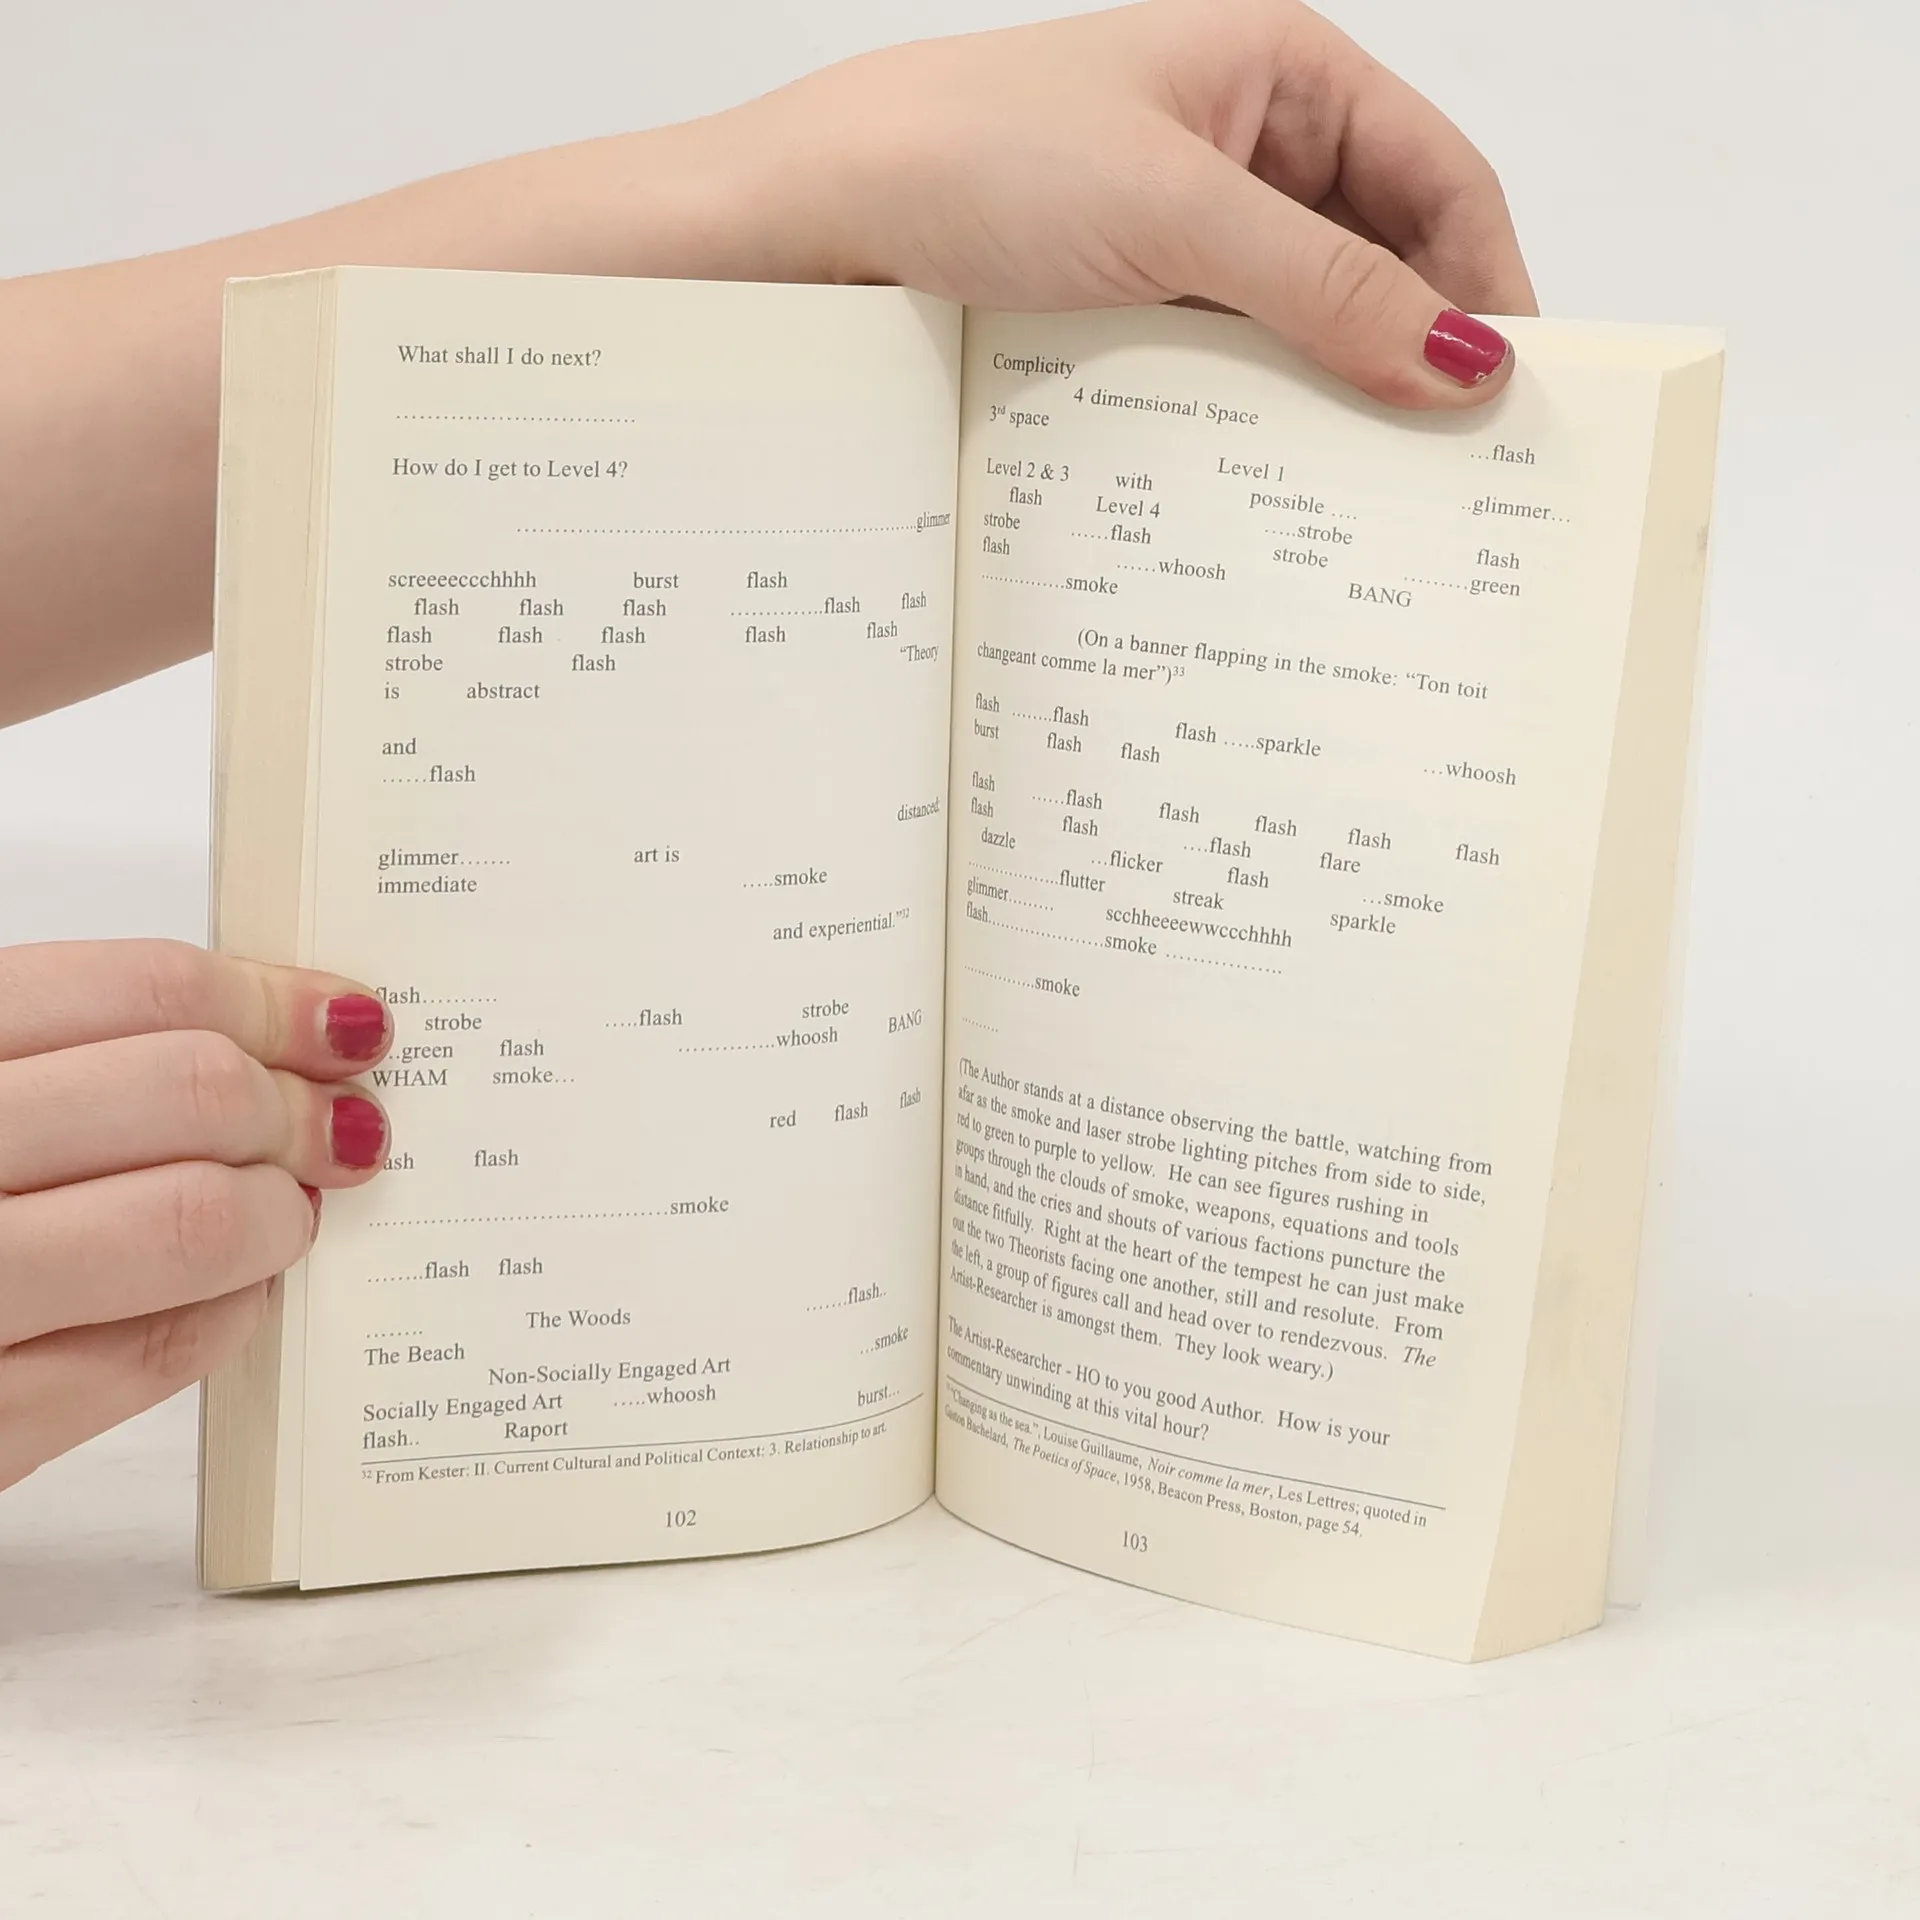 What shall I do next?
..............................
How do I get to Level 4?
....................................................glimmer
screeeeccchhhh burst flash
flash flash flash ..............flash flash
flash flash flash flash flash
strobe flash “Theory
is abstract
and
......flash
distanced:
glimmer....... art is
immediate .....smoke
and experiential.”32
flash..........
strobe .....flash strobe
..green flash ..............whoosh BANG
WHAM smoke...
red flash flash
ash flash
.......................................smoke
........flash flash
........ The Woods .......flash..
The Beach ...smoke
Non-Socially Engaged Art
Socially Engaged Art .....whoosh burst...
flash.. Raport
32 From Kester: II. Current Cultural and Political Context: 3. Relationship to art.
102
Complicity
4 dimensional Space
3rd space ...flash
Level 2 & 3 with Level 1 ..glimmer...
flash Level 4 possible ....
strobe ......flash .....strobe flash
flash ......whoosh strobe .........green
................smoke BANG
(On a banner flapping in the smoke: “Ton toit
changeant comme la mer”)33
flash ........flash flash .....sparkle
burst flash flash ...whoosh
flash ......flash flash flash flash flash
flash flash ....flash flare
dazzle ...flicker flash ...smoke
..................flutter streak sparkle
glimmer......... scchheeeewwccchhhh
flash......................smoke .................
...............smoke
..........
(The Author stands at a distance observing the battle, watching from
afar as the smoke and laser strobe lighting pitches from side to side,
red to green to purple to yellow. He can see figures rushing in
groups through the clouds of smoke, weapons, equations and tools
in hand, and the cries and shouts of various factions puncture the
distance fitfully. Right at the heart of the tempest he can just make
out the two Theorists facing one another, still and resolute. From
the left, a group of figures call and head over to rendezvous. The
Artist-Researcher is amongst them. They look weary.)
The Artist-Researcher - HO to you good Author. How is your
commentary unwinding at this vital hour?
33 “Changing as the sea.”, Louise Guillaume, Noir comme la mer, Les Lettres; quoted in
Gaston Bachelard, The Poetics of Space, 1958, Beacon Press, Boston, page 54.
103